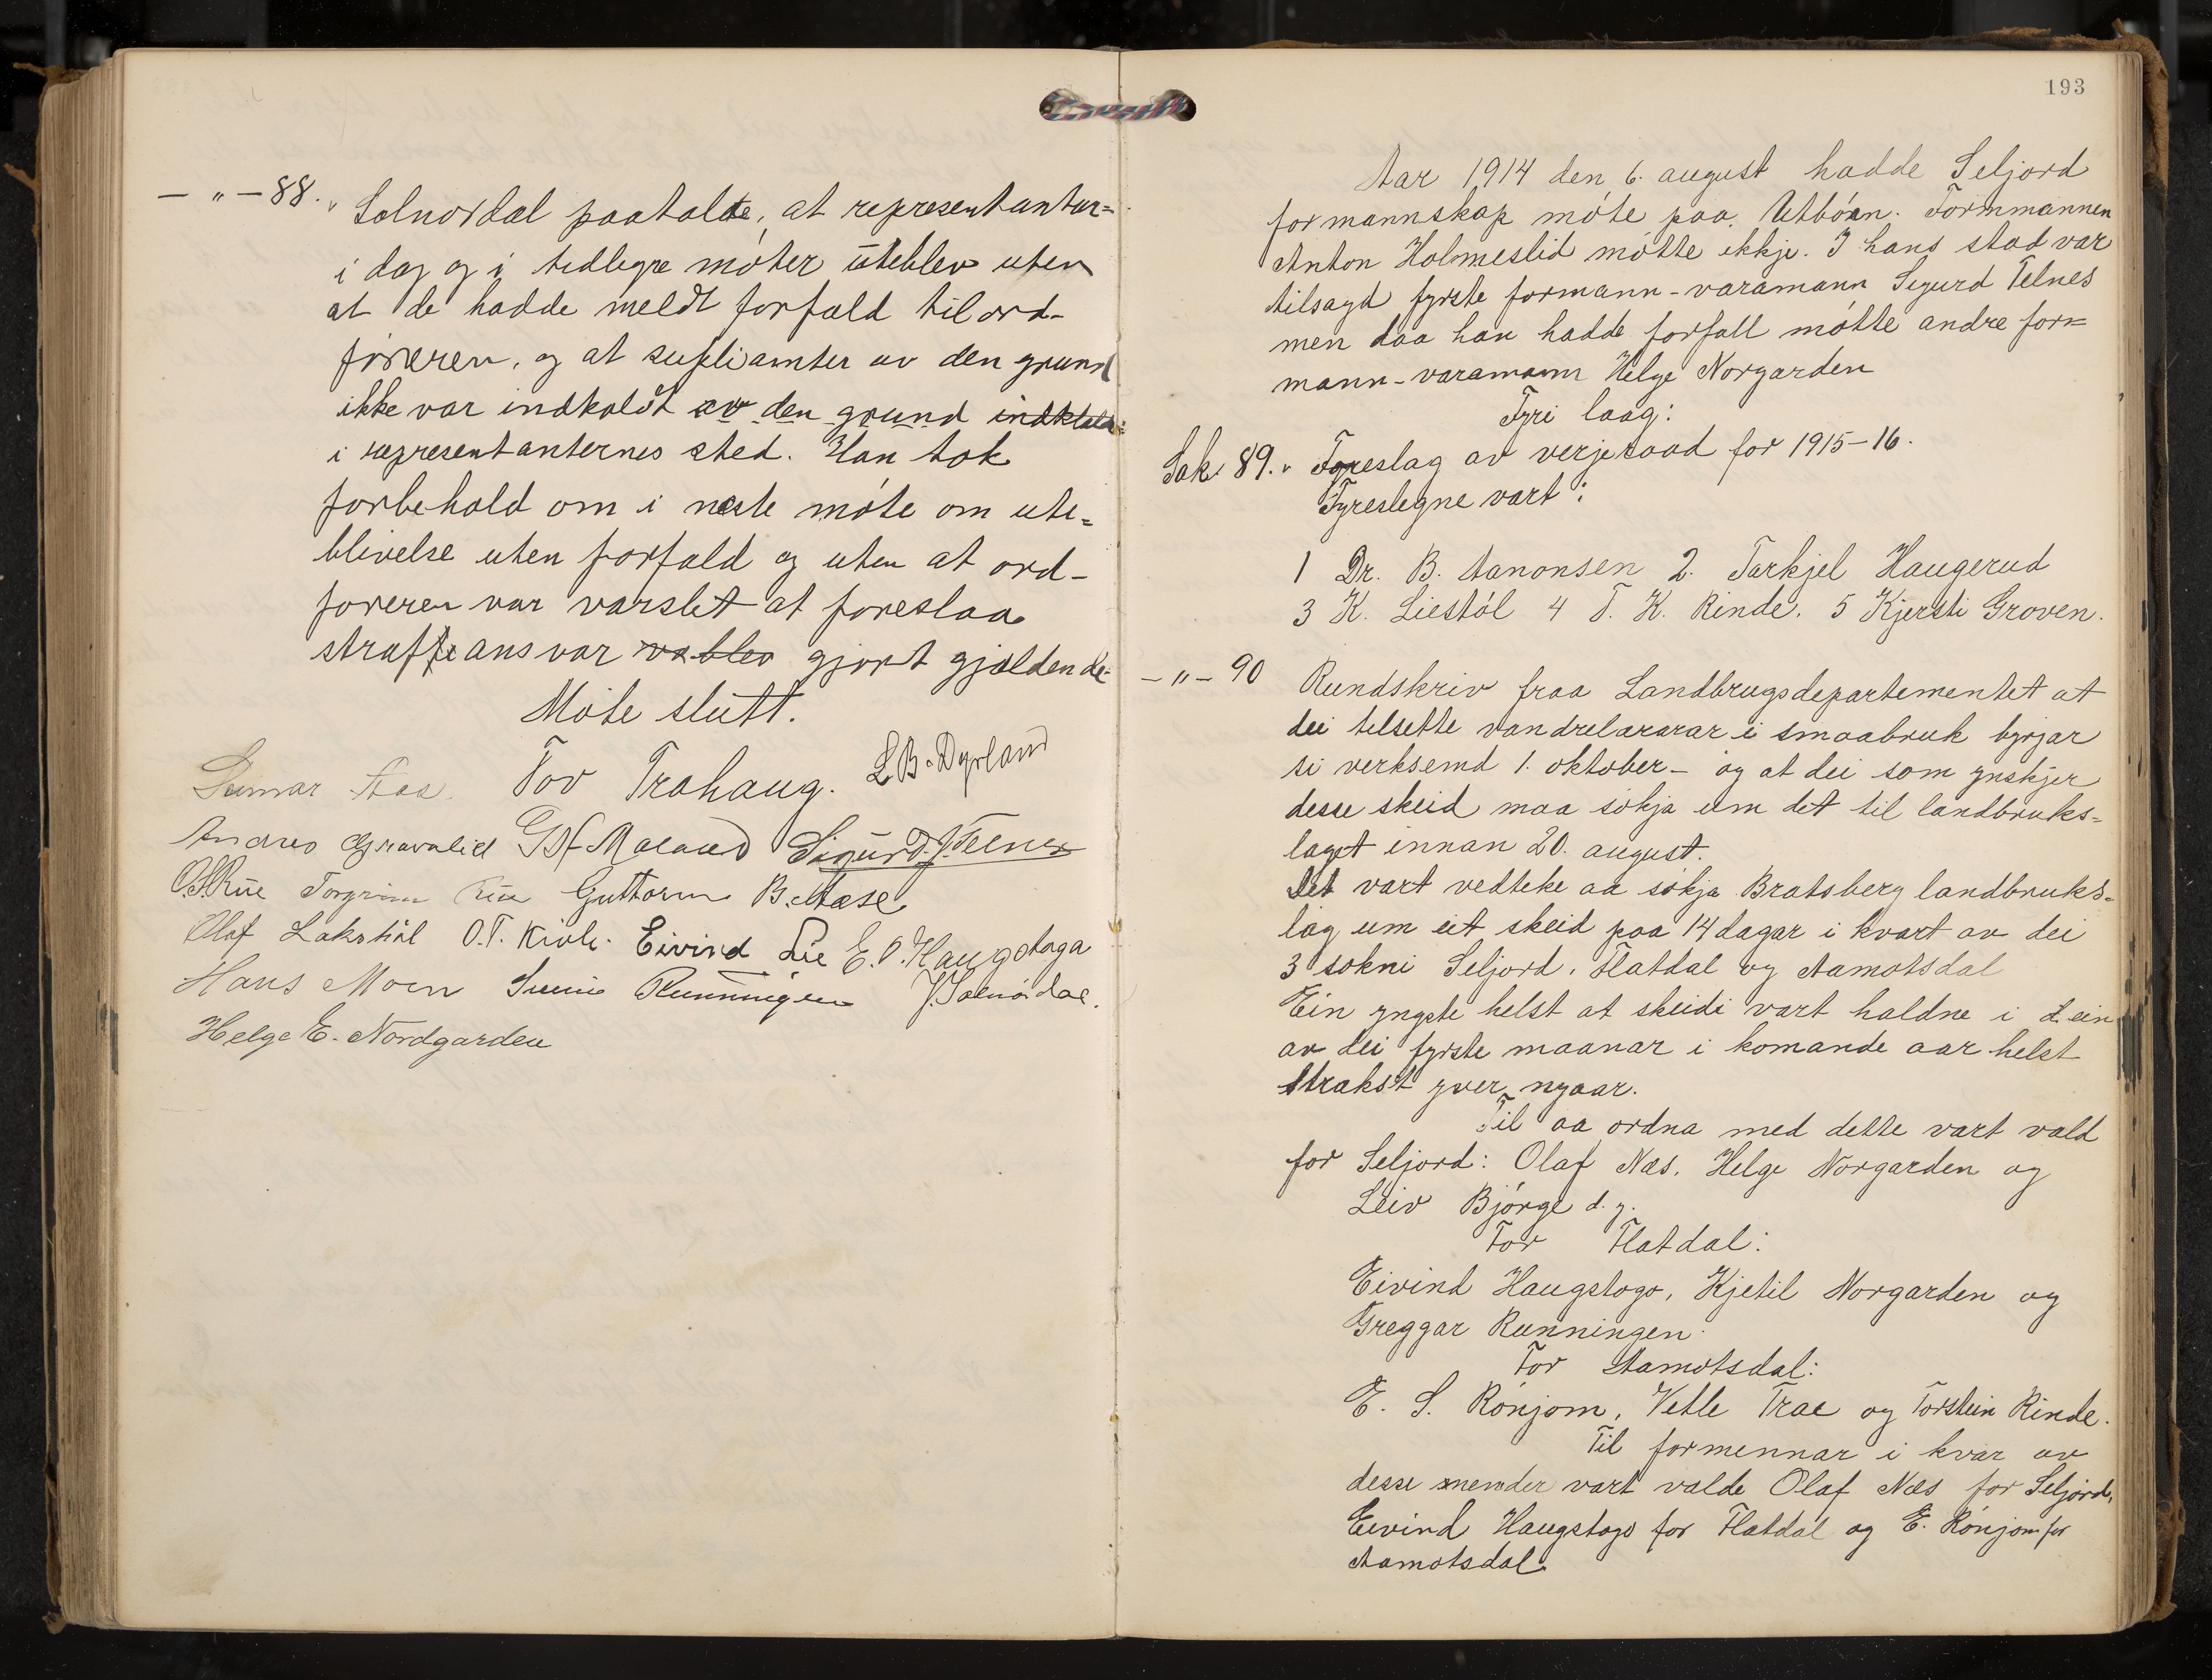 — " — 88. Solnördal paatalte, at representanter=
i dag og i tidligre möter ūteblev uten
at de hadde meldt forfald til ord-
föreren, og at suplianter av den grund
ikke var indkaldt av den grund indkaldt
i representanternes sted. Han tok
forbehold om i næste möte om ute=
blivelse uten forfald og uten at ord-
föreren var varslet at foreslaa
straffeansvar gjort gjældende.
Möte slūtt.
Aas. Tov Trahaug. L B. Dyrland
Andres Gravalid Sigūrd J. Telnes
O. Rūe Torgrim Rūe Guttorm B. Aase
Olaf Lakshöl O. T. Kivle. Eivind Lie E. O. Haugstaga
Hans Moen Runningen J. Solnördal.
Helge E. Nordgarden
193
Aar 1914 den 6. august hadde Seljord
formannskap möte paa Utböen. Formmannen
Anton Holmeslid mötte ikkje. I hans stad var
tilsagd fyrste formann-varamann Sigurd Telnes
men daa han hadde forfall mötte andre for=
mann-varamann Helge Norgarden
Fyri laag:
Sak 89. Fyreslag av verjeraad for 1915-16.
Fyreslegne vart:
1 Dr. B. Aanonsen 2. Tarkjel Haugerud
3 K. Liestöl 4 T. K. Rinde. 5 Kjersti Groven.
— " — 90 Rundskriv fraa Landbrugsdepartementet at
dei tilsette vandrelærarar i smaabruk byrjar
si verksemd 1. oktober - og at dei som ynskjer
desse skeid maa sökja um det til landbruks=
laget innan 20. august.
Det vart vedteke aa sökja Bratsberg landbruks=
lag um eit skeid paa 14 dagar i kvart av dei
3 sokni Seljord, Flatdal og Aamotsdal
Ein yngste helst at skeidi vart haldne i ein
av dei fyrste maanar i komande aar helst
strakst yver nyaar.
Til aa ordna med dette vart vald
for Seljord: Olaf Næs, Helge Norgarden og
Leiv Björge d. y.
For Flatdal:
Eivind Haugstogo, Kjetil Norgarden og
Greggar Runningen.
For Aamotsdal:
E. S. Rönjom, Vetle Trae og Torstein Rinde.
Til formennar i kvar av
desse nemder vart valde Olaf Næs for Seljord,
Eivind Haugstogo for Flatdal og E. Rönjom for
Aamotsdal.